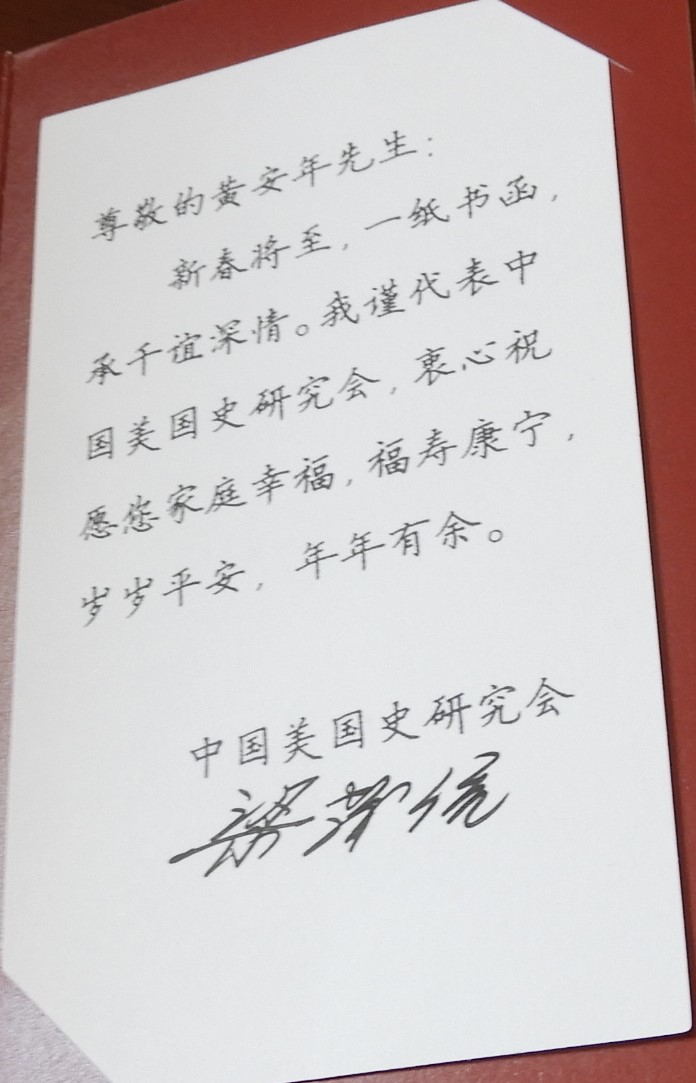 尊敬的黄安年先生：
新春将至，一纸书函，
承千谊深情。我谨代表中
国美国史研究会，衷心祝
愿您家庭幸福，福寿康宁，
岁岁平安，年年有余。
中国美国史研究会
梁茂信